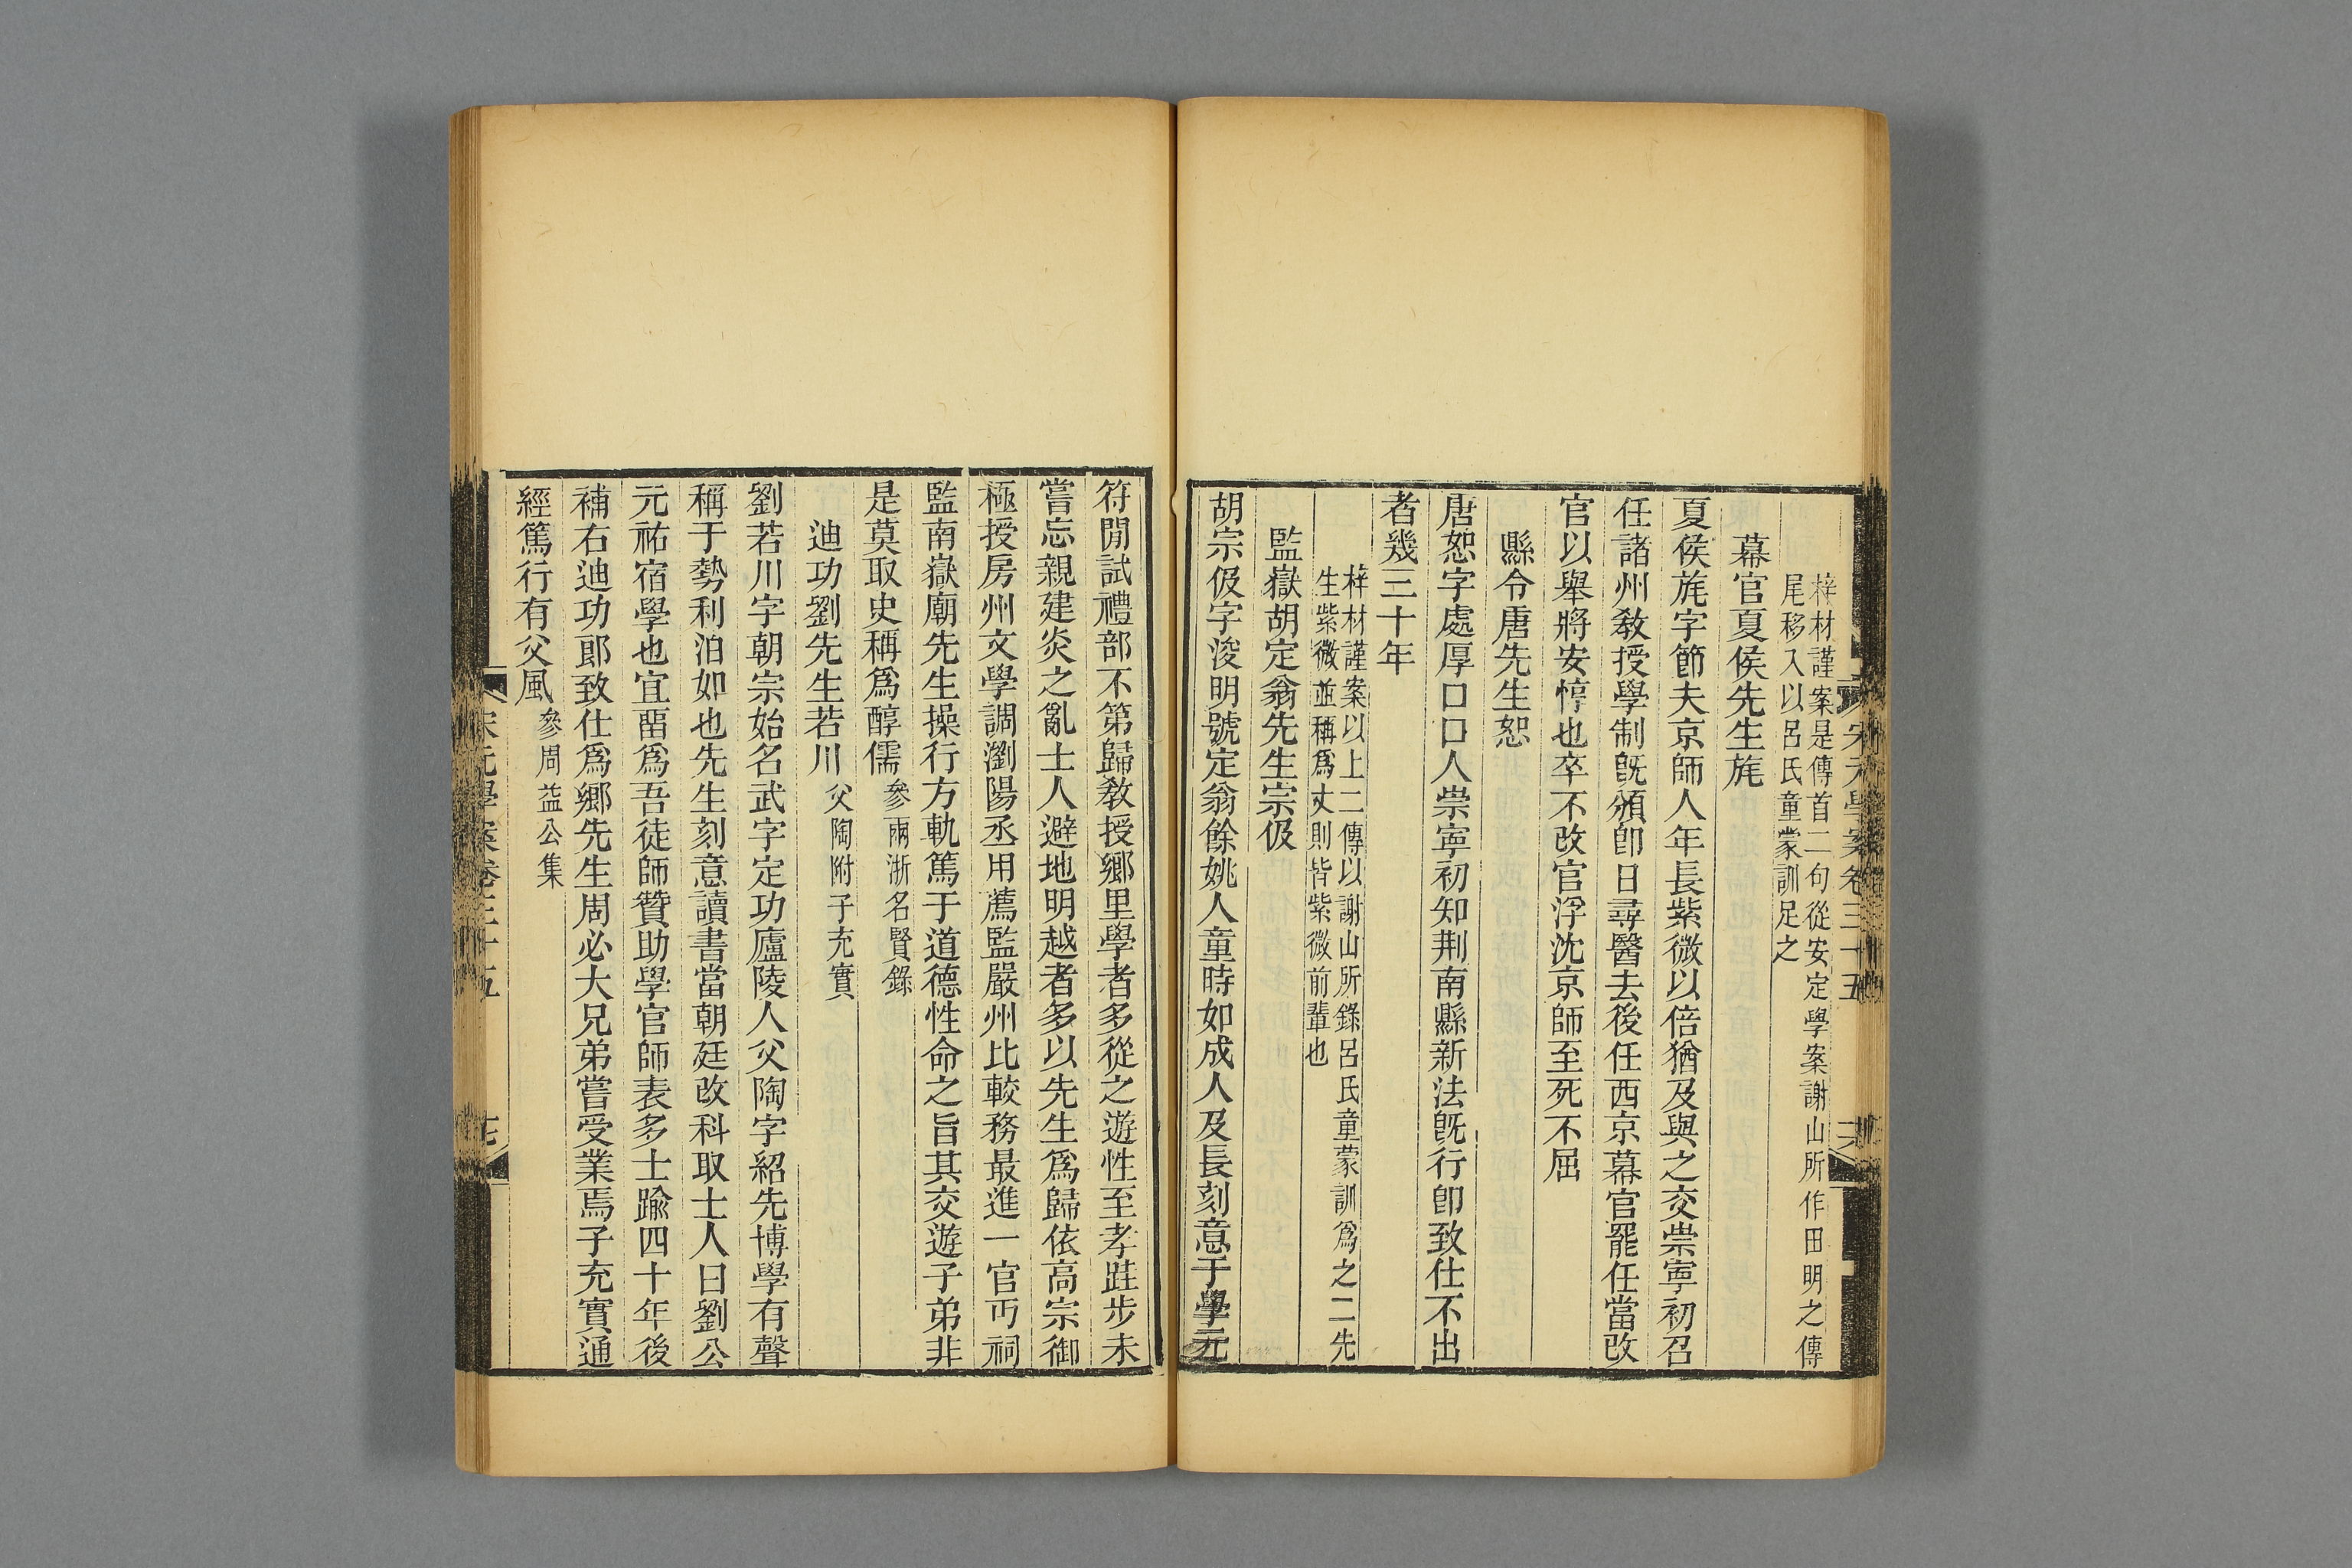 梓材謹案是傳首二句從安定學案謝山所作田明之傳
尾移入以呂氏童蒙訓足之
幕官夏侯先生旄
夏侯旄字節夫京師人年長紫微以倍猶及與之交崇寧初召
任諸州敎授學制旣頒卽日尋醫去後任西京幕官罷任當改
官以舉將安惇也卒不改官浮沈京師至死不屈
縣令唐先生恕
唐恕字處厚口口人崇寧初知荆南縣新法旣行卽致仕不出
者幾三十年
梓材謹案以上二傳以謝山所錄呂氏童蒙訓爲之二先
生紫微並稱爲丈則皆紫微前輩也
監嶽胡定翁先生宗伋
胡宗伋字浚明號定翁餘姚人童時如成人及長刻意于學元
符閒試禮部不第歸敎授鄉里學者多從之遊性至孝跬步未
嘗忘親建炎之亂士人避地明越者多以先生爲歸依高宗御
極授房州文學調瀏陽丞用薦監嚴州比較務最進一官丐祠
監南嶽廟先生操行方軌篤于道德性命之旨其交遊子弟非
是莫取史稱爲醇儒參兩浙名賢錄
迪功劉先生若川父陶附子充實
劉若川字朝宗始名武字定功廬陵人父陶字紹先博學有聲
稱于勢利泊如也先生刻意讀書當朝廷改科取士人曰劉公
元祐宿學也宜畱爲吾徒師贊助學官師表多士踰四十年後
補右迪功郎致仕爲鄉先生周必大兄弟嘗受業焉子充實通
經篤行有父風參周益公集
宋元學案卷三十五